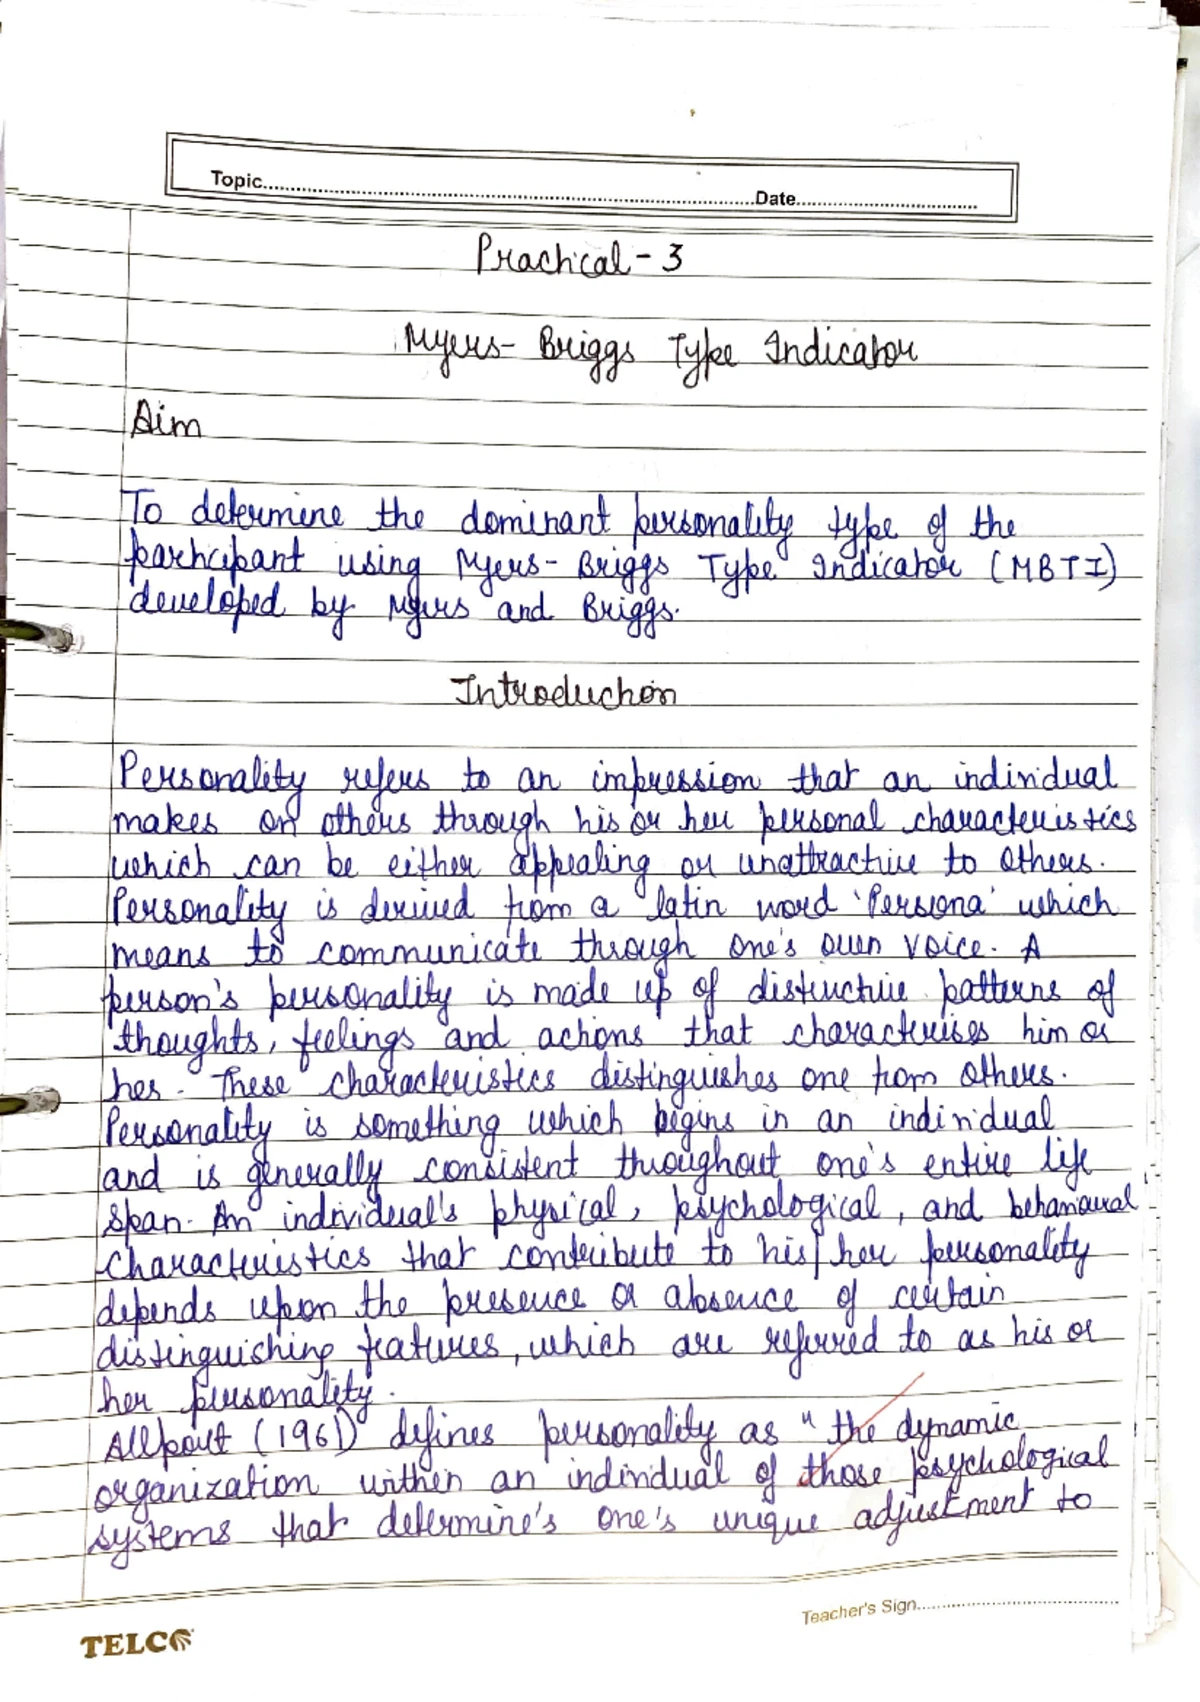 Topic..........Date..........
Practical - 3
Myers- Briggs Type Indicator
Aim
To determine the dominant personality type of the
participant using Myers- Briggs Type Indicator (MBTI)
developed by Myers and Briggs.
Introduction
Personality refers to an impression that an individual
makes on others through his or her personal characteristics
which can be either appealing or unattractive to others.
Personality is derived from a latin word 'Persona' which
means to communicate through one's own voice. A
person's personality is made up of distinctive patterns of
thoughts, feelings and actions that characterises him or
her. These characteristics distinguishes one from others.
Personality is something which begins in an individual
and is generally consistent throughout one's entire life
span. An individual's physical, psychological, and behavioural
characteristics that contribute to his/her personality
depends upon the presence or absence of certain
distinguishing features, which are referred to as his or
her personality.
Allport (1961) defines personality as "the dynamic
organization within an individual of those psychological
systems that determine's one's unique adjustment to
Teacher's Sign..........
TELCO